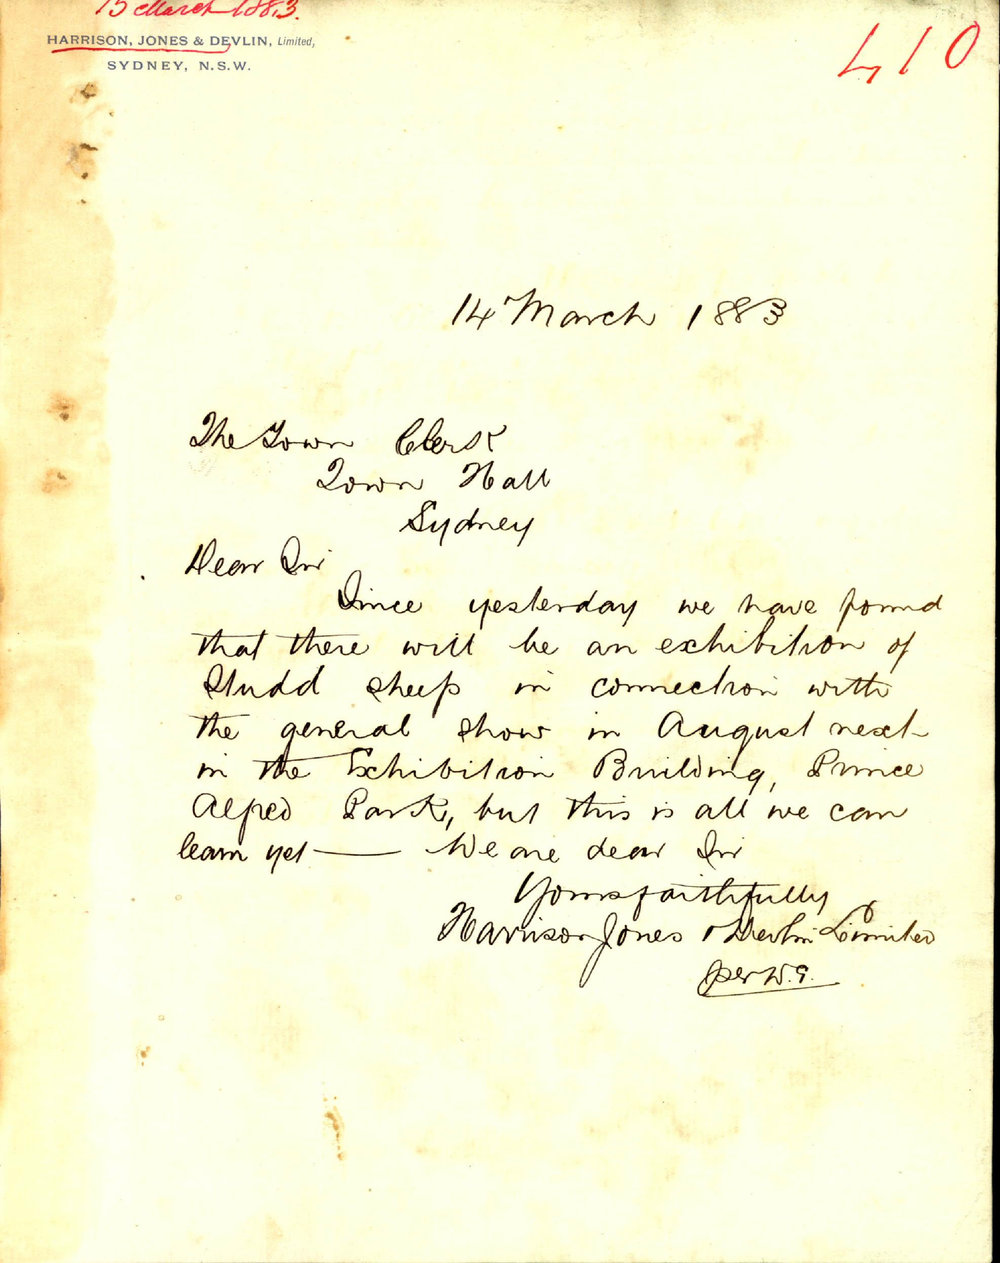 15 March 1883.
410
HARRISON, JONES & DEVLIN, Limited,
SYDNEY, N.S.W.
14 March 1883
The Town Clerk
Town Hall
Sydney
Dear Sir
Since yesterday we have found
that there will be an exhibition of
Studd sheep in connection with
the general show in August next
in the Exhibition Building, Prince
Alfred Park, but this is all we can
learn yet — We are dear Sir
Yours faithfully
Harrison Jones & Devlin Limited
per W.G.